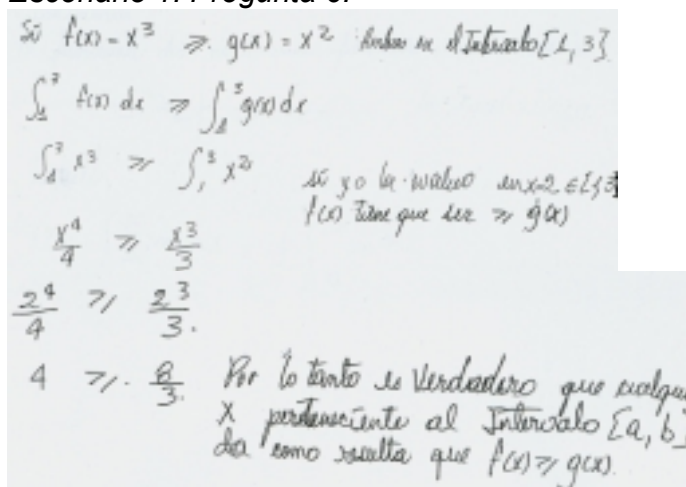 Escenario 1. Pregunta 6.
Si f(x) = x³ ⩾ g(x) = x² Ambas en el Intervalo [1, 3]
∫₁³ f(x) dx ⩾ ∫₁³ g(x) dx
∫₁³ x³ ⩾ ∫₁³ x²
si yo la evaluo en x=2 ∈ [1,3]
f(x) Tiene que ser ⩾ g(x)
x⁴/4 ⩾ x³/3
2⁴/4 ⩾ 2³/3.
4 ⩾. 8/3. Por lo tanto es Verdadero que cualqui
x perteneciente al Intervalo [a, b]
da como resulta que f(x) ⩾ g(x).